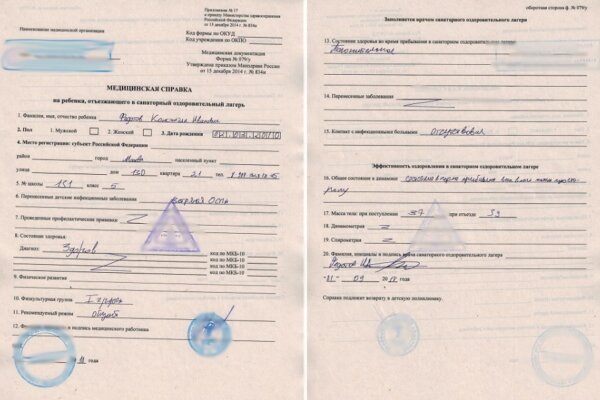 Приложение № 17
к приказу Министерства здравоохранения
Российской Федерации
от 15 декабря 2014 г. № 834н
Наименование медицинской организации
Код формы по ОКУД
Код учреждения по ОКПО
Медицинская документация
Форма № 079/у
Утверждена приказом Минздрава России
от 15 декабря 2014 г. № 834н
МЕДИЦИНСКАЯ СПРАВКА
на ребенка, отъезжающего в санаторный оздоровительный лагерь
1. Фамилия, имя, отчество ребенка Константин Иванович
2. Пол 1. Мужской 2. Женский 3. Дата рождения
4. Место регистрации: субъект Российской Федерации
район город Москва населенный пункт
улица дом 130 квартира 21 тел.
5. № школы 151 класс 5
6. Перенесенные детские инфекционные заболевания ветряная оспа
7. Проведенные профилактические прививки Z
8. Состояние здоровья:
Диагноз: Здоров код по МКБ-10
код по МКБ-10
код по МКБ-10
код по МКБ-10
9. Физическое развитие
10. Физкультурная группа I группа
11. Рекомендуемый режим общий
12. и подпись медицинского работника
года
оборотная сторона ф. № 079/у
Заполняется врачом санаторного оздоровительного лагеря
13. Состояние здоровья во время пребывания в санаторном оздоровительном лагере
14. Перенесенные заболевания
15. Контакт с инфекционными больными отсутствовал
Эффективность оздоровления в санаторном оздоровительном лагере
16. Общее состояние в динамике
17. Масса тела: при поступлении 37 при отъезде 39
18. Динамометрия Z
19. Спирометрия Z
20. Фамилия, инициалы и подпись врача санаторного оздоровительного лагеря
Справка подлежит возврату в детскую поликлинику.